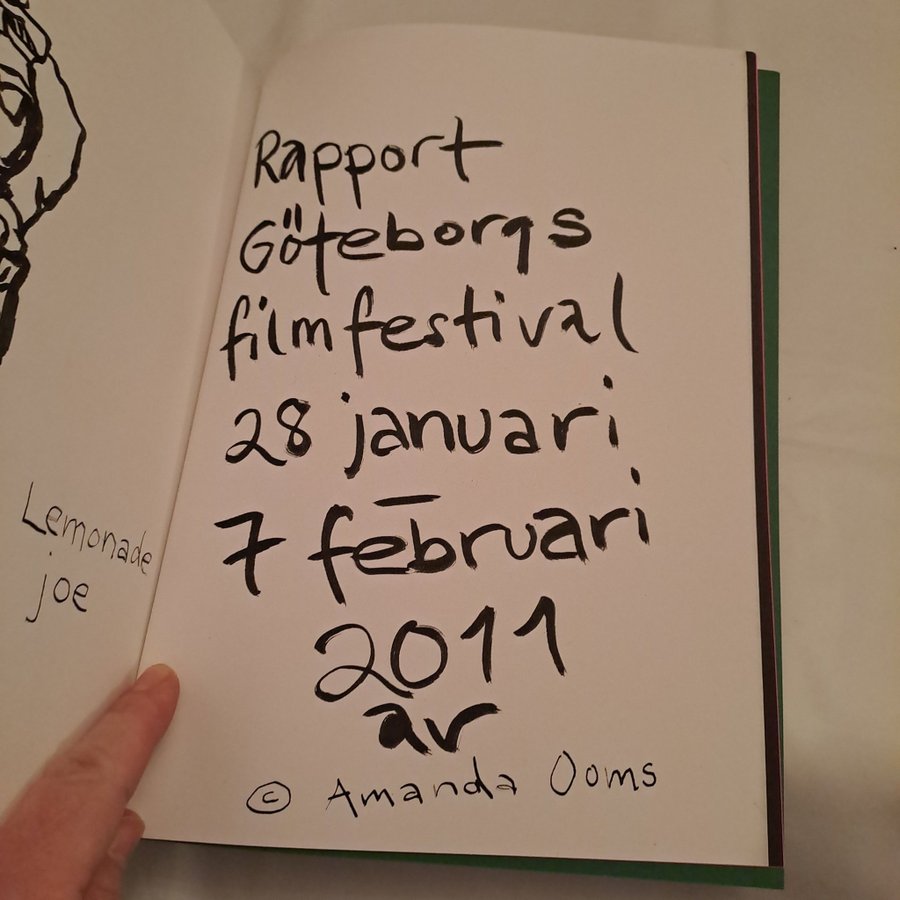 Lemonade
joe
Rapport
Göteborgs
filmfestival
28 januari
–
7 februari
2011
av
© Amanda Ooms